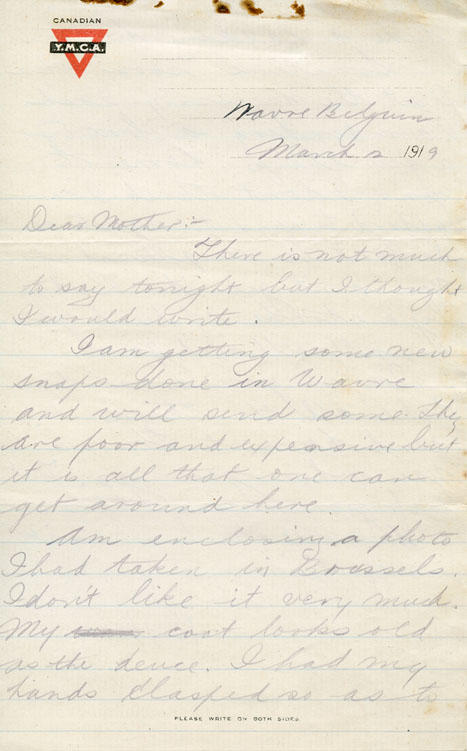 CANADIAN
Y.M.C.A.
Wavre Belguim
March 2 1919
Dear Mother:-
There is not much
to say tonight but I thought
I would write.
I am getting some new
snaps done in Wavre
and will send some. They
are poor and expensive but
it is all that one can
get around here.
Am enclosing a photo
I had taken in Brussels.
I don't like it very much.
My coat looks old
as the deuce. I had my
hands clasped so as to
PLEASE WRITE ON BOTH SIDES